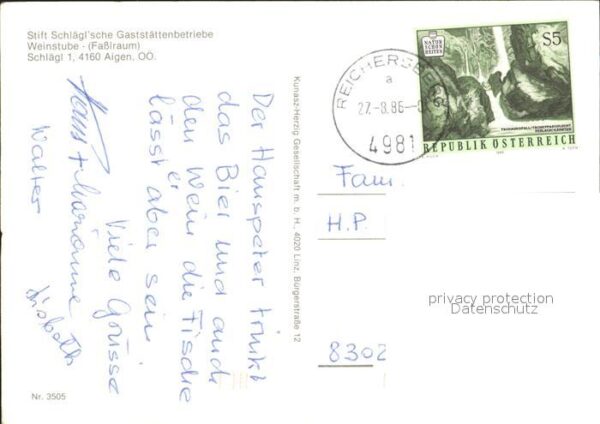 Stift Schlägl'sche Gaststättenbetriebe
Weinstube - (Faßlraum)
Schlägl 1, 4160 Aigen, OÖ.
Der Hanspeter trinkt
das Bier und auch
den Wein die Fische
er
lässt aber sein
Viele Grüsse
Hans + Marianne
Walter
Kunasz-Herzig Gesellschaft m. b. H., 4020 Linz, Bürgerstraße 12
Nr. 3505
NATUR
SCHÖN
HEITEN
S5
REPUBLIK ÖSTERREICH
REICHERSBERG
a
27.-8.86-
4981
Fam.
H.P.
8302
privacy protection
Datenschutz